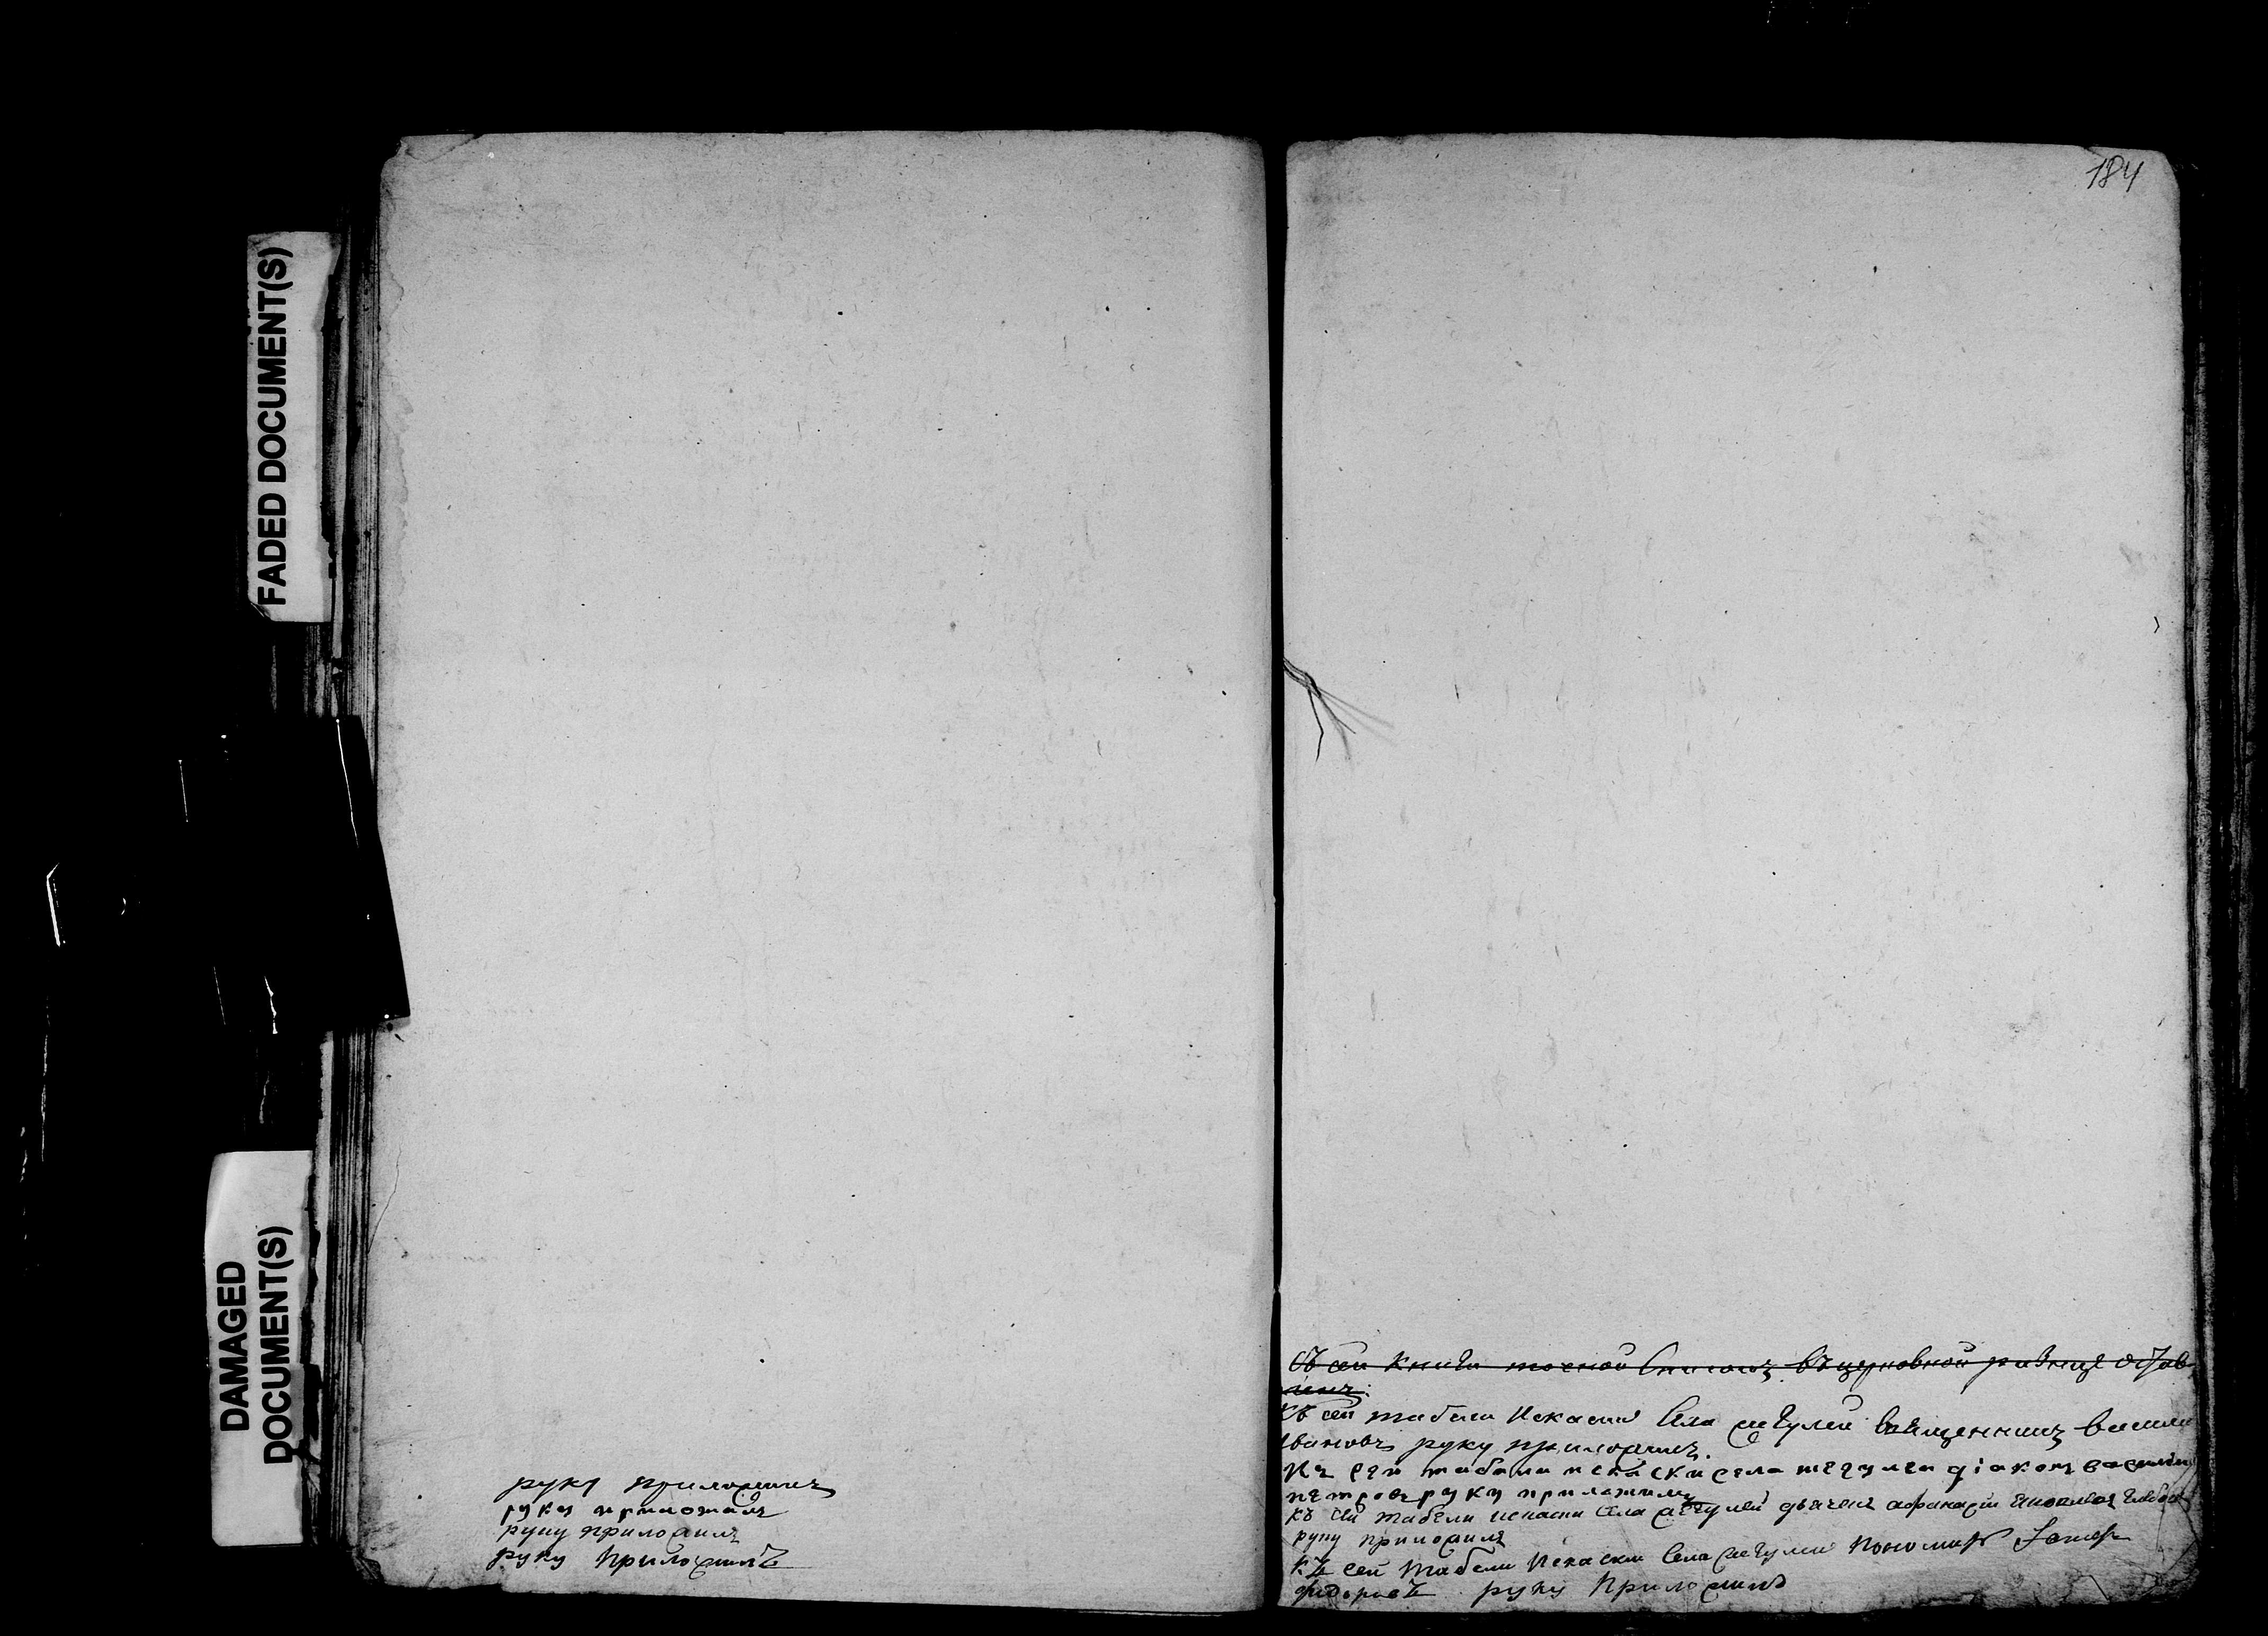 FADED DOCUMENT(S)
DAMAGED
DOCUMENT(S)
руку приложилъ
руку приложилъ
руку приложилъ
руку приложилъ
184
Съ сей книги точной списокъ въ церковной ризнице остав
ленъ
Къ сей табели исказки села священникъ василей
Ивановъ руку приложилъ
Къ сей табели исказки села діаконъ василей
петровъ руку приложилъ
къ сей табели исказки села дьячекъ афанасей
руку приложилъ
Къ сей табели исказки села пономарь
федоровъ руку приложилъ